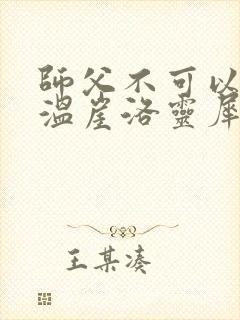 師父不可以
溫崖洛靈犀
王某湊